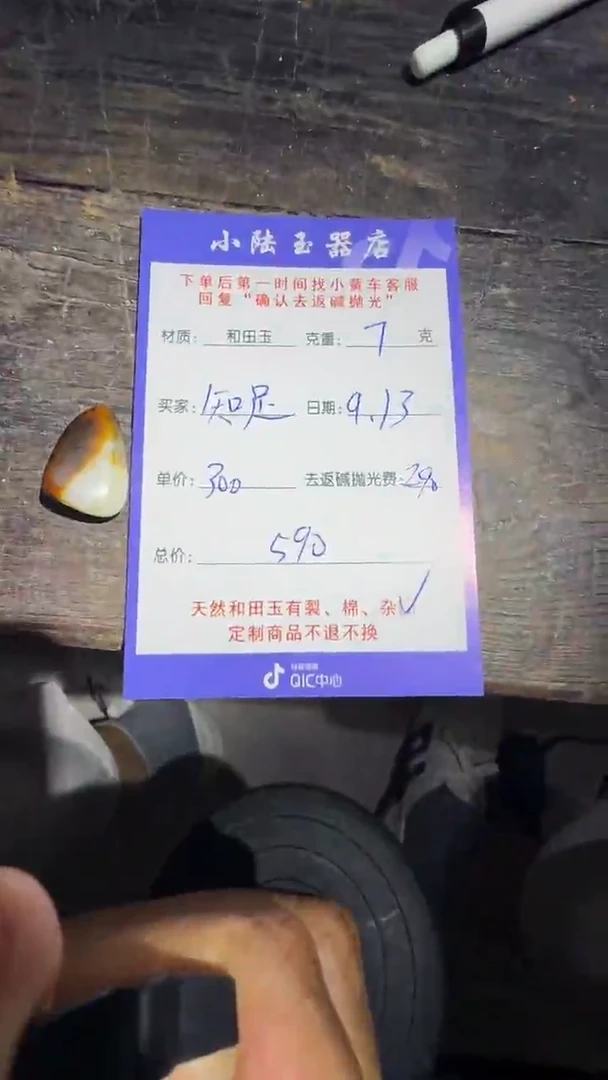 小陆玉器店
下单后第一时间找小黄车客服
回复“确认去返碱抛光”
材质: 和田玉 克重: 7 克
买家: 知足 日期: 9.13
单价: 300 去返碱抛光费: 290
总价: 590
天然和田玉有裂、棉、杂
定制商品不退不换
QIC中心